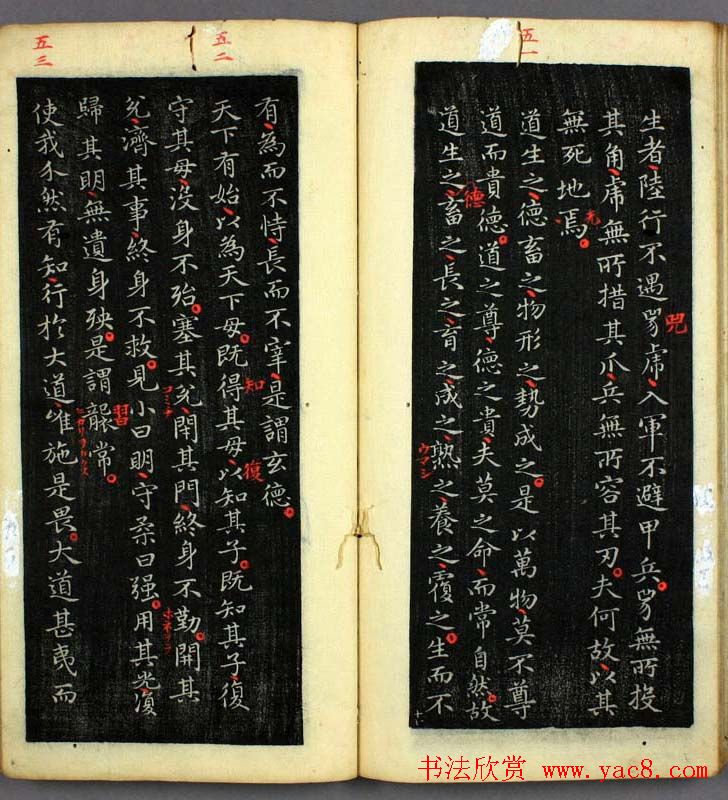 五一
生者陸行不遇兕虎入軍不避甲兵兕無所投
兕
其角虎無所措其爪兵無所容其刃夫何故以其
無死地焉
道生之德畜之物形之勢成之是以萬物莫不尊
道而貴德道之尊德之貴夫莫之命而常自然故
道生之畜之長之育之成之熟之養之覆之生而不
德
ウマシ
五二
有為而不恃長而不宰是謂玄德
天下有始以為天下母既得其母以知其子既知其子復
知
復
守其母沒身不殆塞其兌閉其門終身不勤開其
兌濟其事終身不救見小曰明守柔曰强用其光復
歸其明無遺身殃是謂襲常
習
五三
使我介然有知行於大道唯施是畏大道甚夷而
书法欣赏 www.yac8.com